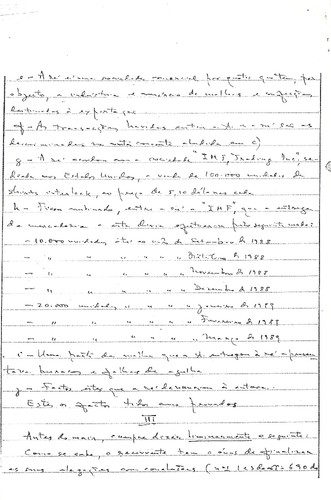 e - A ré é uma sociedade comercial por quotas que tem, por
objecto, a indústria e comércio de malhas e confecções
destinadas à exportação
f - As transacções havidas entre a A. e a ré são as
discriminadas na
g - A ré acordou com a sociedade "I.M.F. Trading Inc", se-
deada nos Estados Unidos, a venda de 100.000 unidades de
interlock, ao preço de 5,10 dólares cada
h - Ficou combinado, entre a ré e a "I.M.F.", que a entrega
da mercadoria a esta devia efectuar-se pelo seguinte modo:
- 10.000 unidades até de Setembro de 1988
- " " " " Outubro de 1988
- " " " " Novembro de 1988
- " " " " Dezembro de 1988
- 20.000 unidades " " " Janeiro de 1989
- " " " " Fevereiro de 1989
- " " " " Março de 1989
i - Uma parte da malha que a A. entregou à ré apresen-
tava buracos e falhas de agulha
j - Foi a ré denunciou à autora.
Estes os factos tidos como provados
III
Antes do mais, cumpre dizer liminarmente o seguinte:
Como se sabe, o recorrente tem o ónus de finalizar
as suas alegações com conclusões (